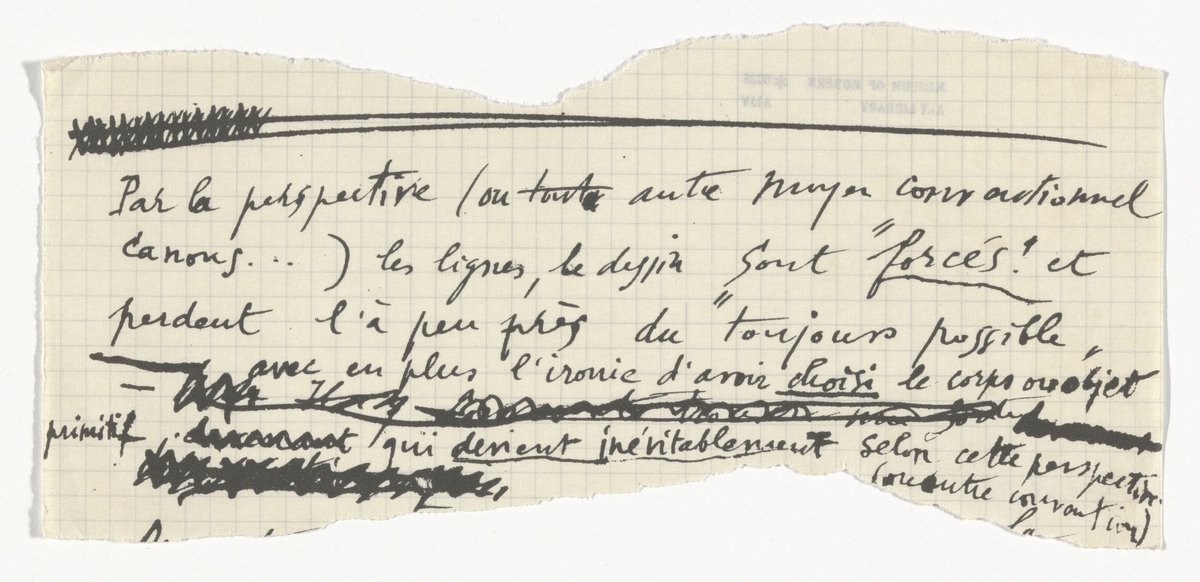 Par la perspective (ou toute autre moyen conventionnel
canons... ) les lignes, le dessin sont "forcés" et
perdent l'à peu près du "toujours possible"
avec en plus l'ironie d'avoir choisi le corps ou objet
primitif, qui devient inévitablement selon cette perspective
(ou autre convention)